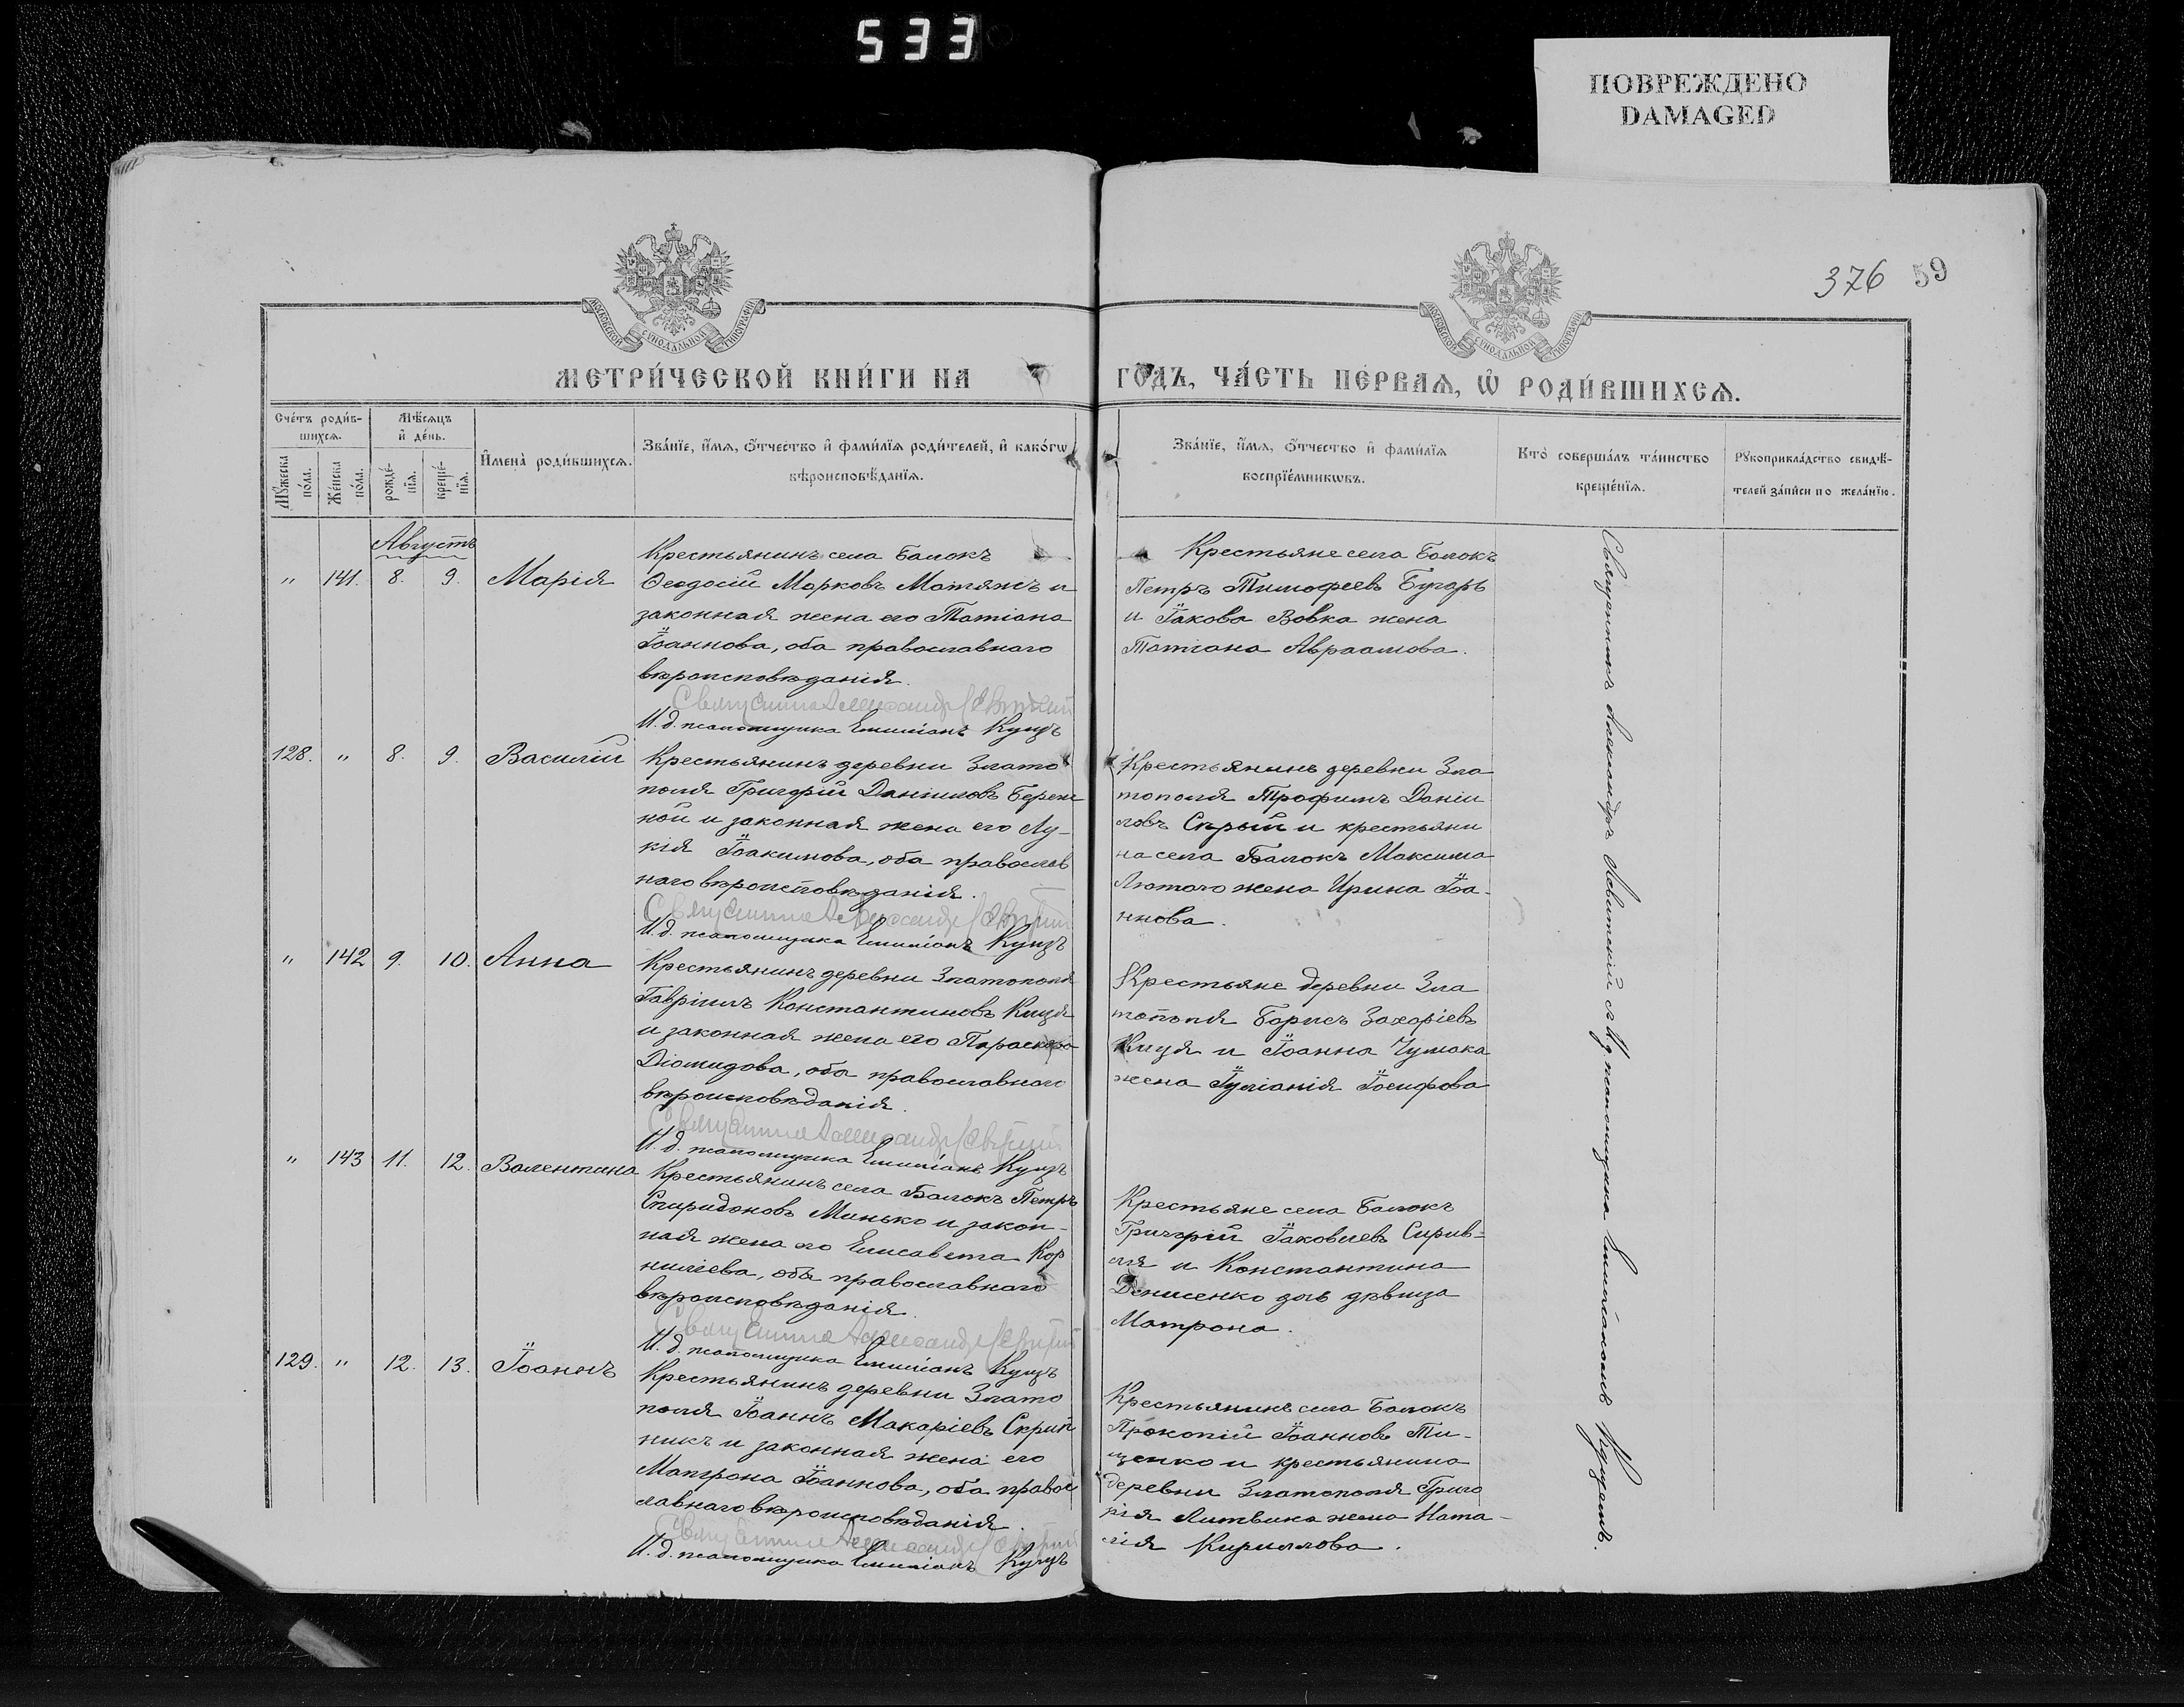 533
ПОВРЕЖДЕНО
DAMAGED
376 59
МОСКОВСКОЙ СѴНОДАЛЬНОЙ ТИПОГРАФІИ
МОСКОВСКОЙ СѴНОДАЛЬНОЙ ТИПОГРАФІИ
МЕТРИ́ЧЕСКОЙ КНИ́ГИ НА
ГО́ДЪ, ЧА́СТЬ ПЕ́РВАѦ, Ѡ҆ РОДИ́ВШИХСѦ.
Сче́тъ роди́в-
шихсѧ.
Мꙋ́жеска по́ла.
Же́нска по́ла.
Мѣ́сѧцъ
и҆ де́нь.
рожде́-
нїѧ.
креще́-
нїѧ.
И҆мена̀ роди́вшихсѧ.
Зва́нїе, и҆́мѧ, ѻ҆́тчество и҆ фами́лїѧ роди́телей, и҆ како́гѡ
вѣроисповѣ́данїѧ.
Зва́нїе, и҆́мѧ, ѻ҆́тчество и҆ фами́лїѧ
воспрїе́мникѡвъ.
Кто̀ соверша́лъ та́инство
креще́нїѧ.
Рꙋкоприкла́дство свидѣ́-
телей за́писи по жела́нїю.
Августъ
" 141. 8. 9. Марія
Крестьянинъ села Балокъ
Ѳеодосій Марковъ Матяжъ и
законная жена его Татіана
Іоаннова, оба православнаго
вѣроисповѣданія.
Священникъ Александръ Левитскій
И. д. псаломщика Емиліанъ Кущъ
Крестьяне села Балокъ
Петръ Тимофеевъ Бугарь
и Іакова Вовка жена
Татіана Авраамова.
128. " 8. 9. Василій
Крестьянинъ деревни Злато
поля Григорій Даніиловъ Береж
ной и законная жена его Лу-
кія Іоакимова, оба православ
наго вѣроисповѣданія.
Священникъ Александръ Левитскій
И. д. псаломщика Емиліанъ Кущъ
Крестьянинъ деревни Зла
тополя Трофимъ Даніи
ловъ Сѣрый и крестьяни
на села Балокъ Максима
Лютого жена Ирина Іоа-
ннова.
" 142 9. 10. Анна
Крестьянинъ деревни Златополя
Гавріилъ Константиновъ Киця
и законная жена его Параскева
Діомидова, оба православнаго
вѣроисповѣданія.
Священникъ Александръ Левитскій
И. д. псаломщика Емиліанъ Кущъ
Крестьяне деревни Зла
тополя Борисъ Захаріевъ
Киця и Іоанна Чумака
жена Іуліанія Іосифова
" 143 11. 12. Валентина
Крестьянинъ села Балокъ Петръ
Спиридоновъ Минько и закон-
ная жена его Елисавета Кор
нилиева, оба православнаго
вѣроисповѣданія.
Священникъ Александръ Левитскій
И. д. псаломщика Емиліанъ Кущъ
Крестьяне села Балокъ
Григорій Іаковлевъ Сирив-
ля и Константина
Денисенко дочь дѣвица
Матрона.
129. " 12. 13. Іоаннъ
Крестьянинъ деревни Злато
поля Іоаннъ Макаріевъ Скрип
никъ и законная жена его
Матрона Іоаннова, оба право
славнаго вѣроисповѣданія.
Священникъ Александръ Левитскій
И. д. псаломщика Емиліанъ Кущъ
Крестьянинъ села Балокъ
Прокопій Іоанновъ Ти-
щенко и крестьянина
деревни Златополя Григо
рія Литвина жена Ната-
лія Кириллова.
Священникъ Александръ Левитскій съ И. д. псаломщика Емиліаномъ Кущемъ.